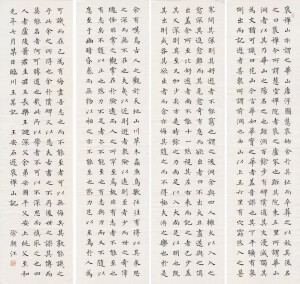 褒禪山亦謂之華山唐浮圖慧褒始舍於其址而卒葬之以故其後名
之曰褒禪今所謂慧空禪院者褒之廬冢也距其院東五里所謂華陽
洞者以其乃華山之陽名之也距洞百餘步有碑仆道其文漫滅獨其
爲文猶可識曰花山今言華如華實之華者蓋音謬也其下平曠有泉
側出而記遊者甚衆所謂前洞也由山以上五六里有穴窈然入之甚
寒問其深則其好遊者不能窮也謂之後洞余與四人擁火以入入之
愈深其進愈難而其見愈奇有怠而欲出者曰不出火且盡遂與之俱
出蓋余所至比好遊者尚不能十一然視其左右來而記之者已少蓋
其又深則其至又加少矣方是時余之力尚足以入火尚足以明也既
其出則或咎其欲出者而余亦悔其隨之而不得極夫遊之樂也於是
余有嘆焉古人之觀於天地山川草木蟲魚鳥獸往往有得以其求思
之深而無不在也夫夷以近則遊者衆險以遠則至者少而世之奇偉
瑰怪非常之觀常在於險遠而人之所罕至焉故非有志者不能至也
有志矣不隨以止也然力不足者亦不能至也有志與力而又不隨以
怠至於幽暗昏惑而無物以相之亦不能至也然力足以至焉於人爲
可譏而在己爲有悔盡吾志也而不能至者可以無悔矣其孰能譏之
乎此余之所得也余於仆碑又以悲夫古書之不存後世之謬其傳而
莫能名者何可勝道也哉此所以學者不可以不深思而慎取之也四
人者廬陵蕭君圭君玉長樂王回深父余弟安國平父安上純父至和
元年七月某日臨川王某記 徐朝江